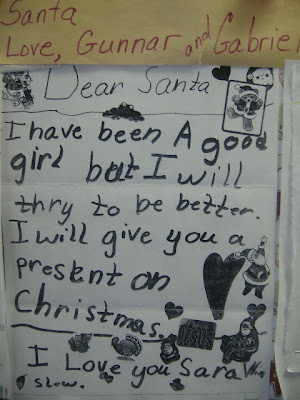 Santa
Love, Gunnar and Gabrie
Dear Santa
I have been A good
girl but I will
thry to be better.
I will give you a
present on
Christmas.
I Love you Sara
slow.